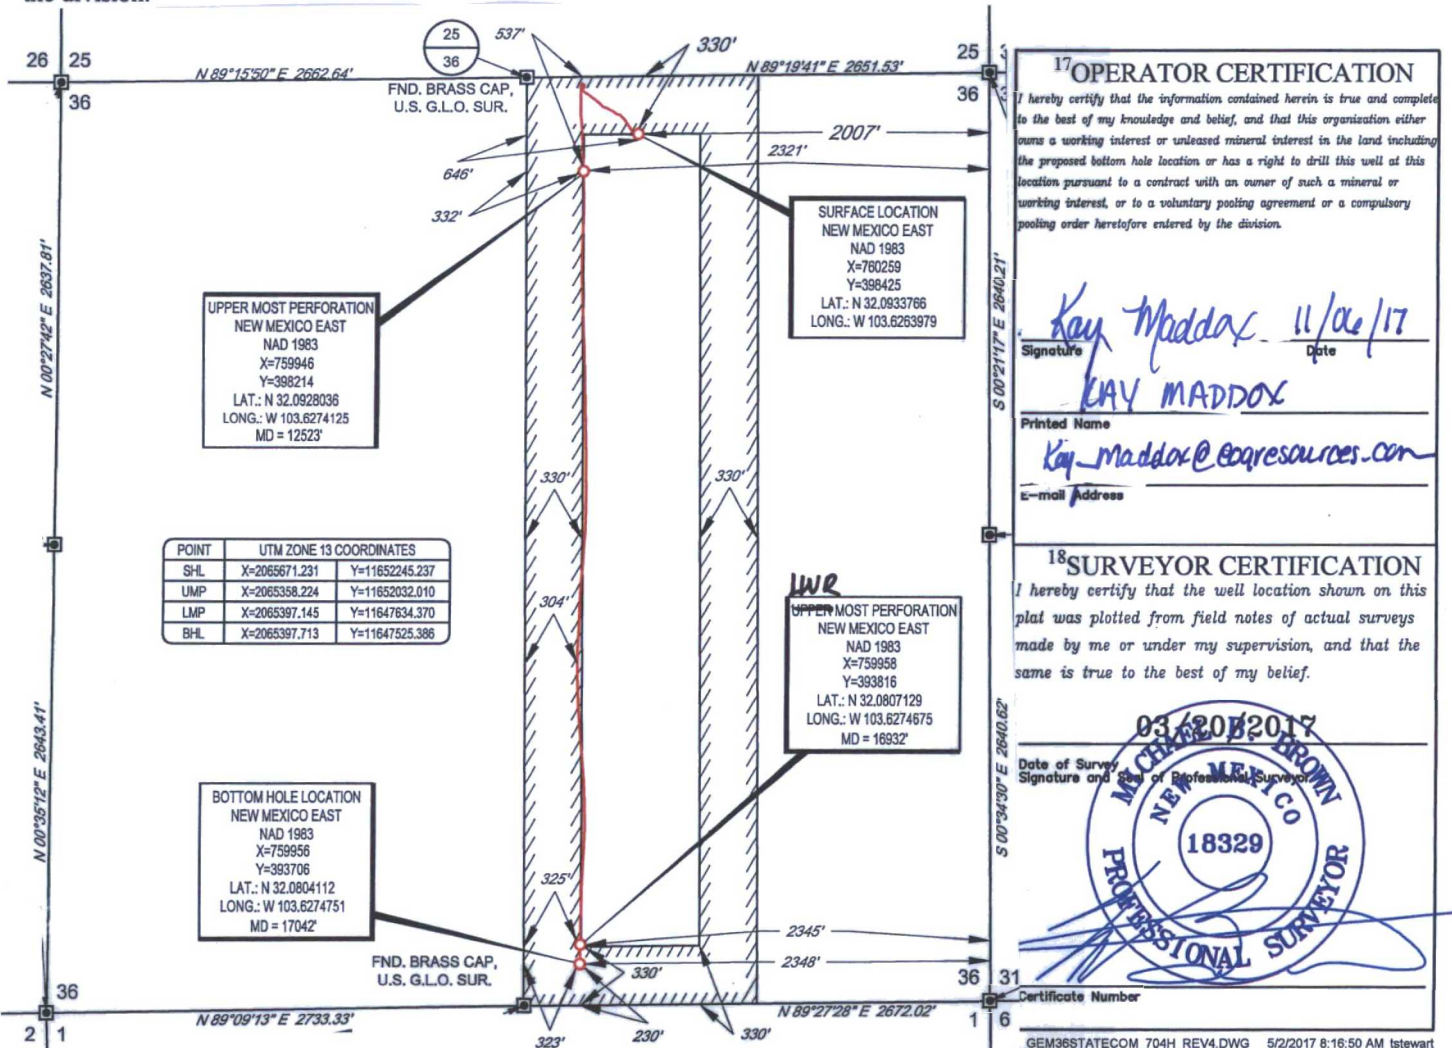 the division.
26 25
36
N 89°15'50" E 2662.64'
25
36
537'
330'
FND. BRASS CAP,
U.S. G.L.O. SUR.
N 89°19'41" E 2651.53'
25
36
2007'
2321'
646'
332'
SURFACE LOCATION
NEW MEXICO EAST
NAD 1983
X=760259
Y=398425
LAT.: N 32.0933766
LONG.: W 103.6263979
N 00°27'42" E 2637.81'
UPPER MOST PERFORATION
NEW MEXICO EAST
NAD 1983
X=759946
Y=398214
LAT.: N 32.0928036
LONG.: W 103.6274125
MD = 12523'
S 00°21'17" E 2640.21'
330'
330'
POINT UTM ZONE 13 COORDINATES
SHL X=2065671.231 Y=11652245.237
UMP X=2065358.224 Y=11652032.010
LMP X=2065397.145 Y=11647634.370
BHL X=2065397.713 Y=11647525.386
304'
LWR
UPPER MOST PERFORATION
NEW MEXICO EAST
NAD 1983
X=759958
Y=393816
LAT.: N 32.0807129
LONG.: W 103.6274675
MD = 16932'
N 00°35'12" E 2643.41'
S 00°34'30" E 2640.62'
BOTTOM HOLE LOCATION
NEW MEXICO EAST
NAD 1983
X=759956
Y=393706
LAT.: N 32.0804112
LONG.: W 103.6274751
MD = 17042'
325'
2345'
2348'
FND. BRASS CAP,
U.S. G.L.O. SUR.
330'
36
2 1
N 89°09'13" E 2733.33'
323'
230'
330'
N 89°27'28" E 2672.02'
36 31
1 6
17 OPERATOR CERTIFICATION
I hereby certify that the information contained herein is true and complete
to the best of my knowledge and belief, and that this organization either
owns a working interest or unleased mineral interest in the land including
the proposed bottom hole location or has a right to drill this well at this
location pursuant to a contract with an owner of such a mineral or
working interest, or to a voluntary pooling agreement or a compulsory
pooling order heretofore entered by the division.
Kay Maddox 11/06/17
Signature Date
KAY MADDOX
Printed Name
Kay_maddox@eogresources.com
E-mail Address
18 SURVEYOR CERTIFICATION
I hereby certify that the well location shown on this
plat was plotted from field notes of actual surveys
made by me or under my supervision, and that the
same is true to the best of my belief.
03/20/2017
Date of Survey
Signature and Seal of Professional Surveyor:
MICHAEL B. BROWN
NEW MEXICO
18329
PROFESSIONAL SURVEYOR
Certificate Number
GEM36STATECOM_704H_REV4.DWG 5/2/2017 8:16:50 AM tstewart